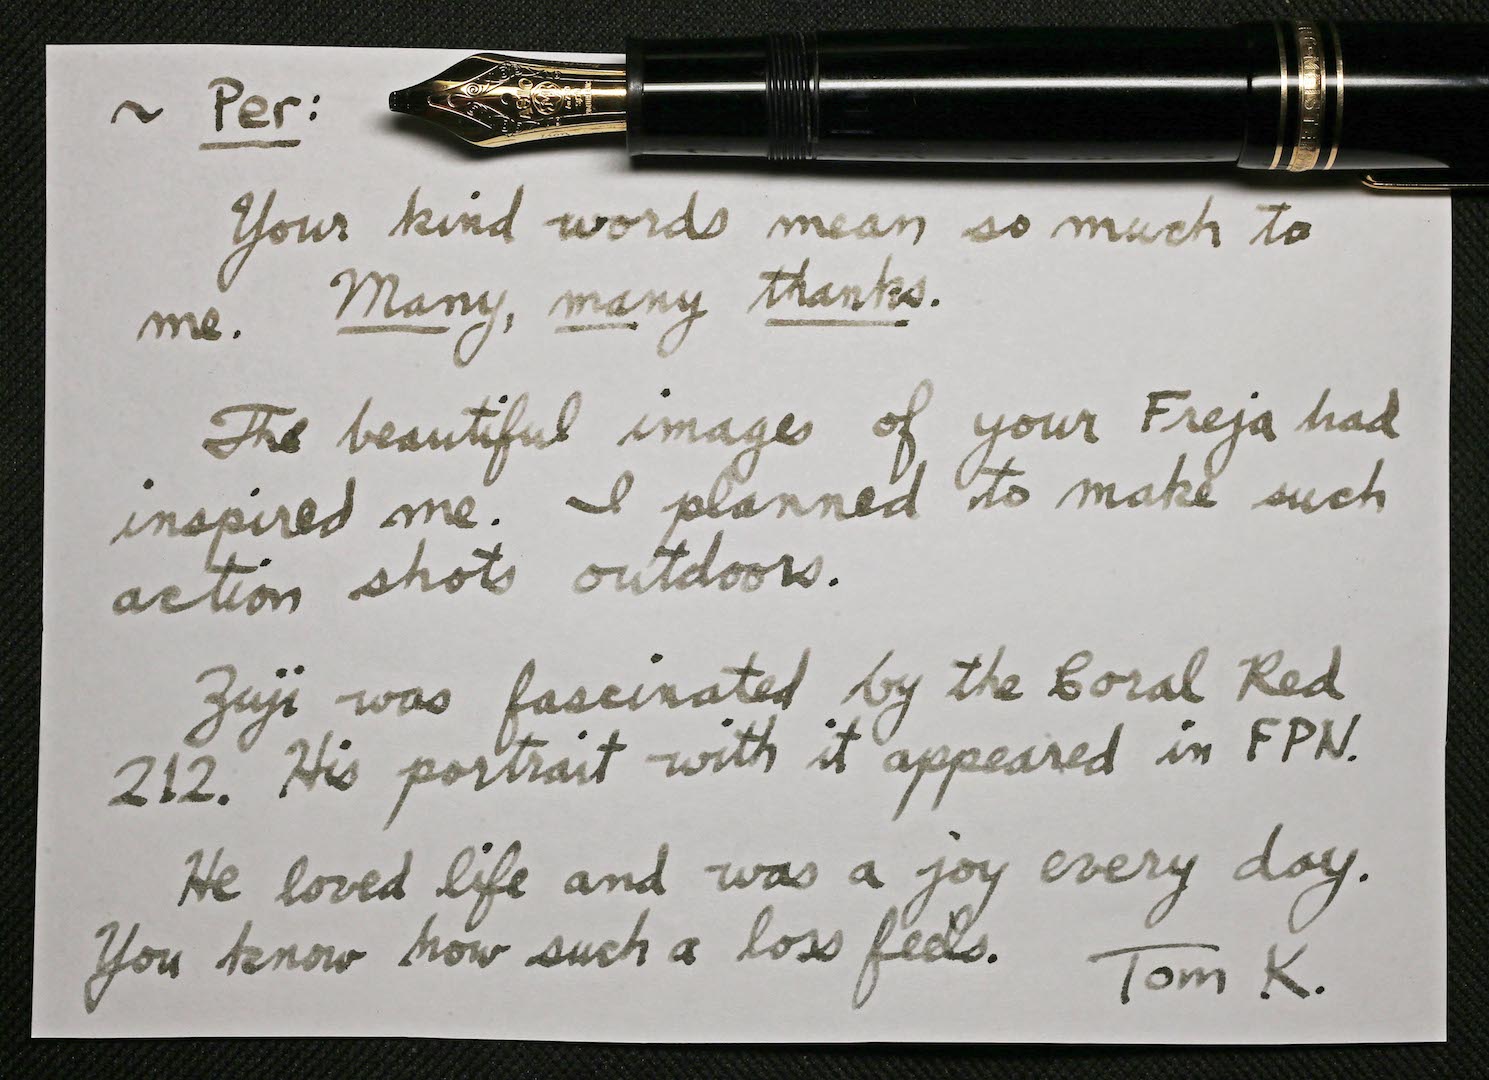 ~ Per:
Your kind words mean so much to
me. Many, many thanks.
The beautiful images of your Freja had
inspired me. I planned to make such
action shots outdoors.
Zuji was fascinated by the Coral Red
212. His portrait with it appeared in FPN.
He loved life and was a joy every day.
You know how such a loss feels.
Tom K.